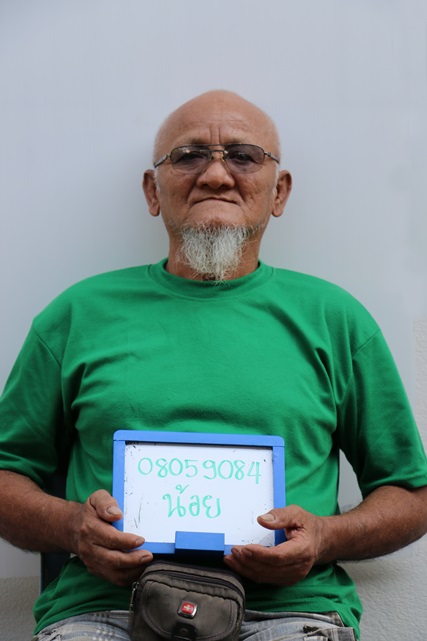 08059084
น้อย